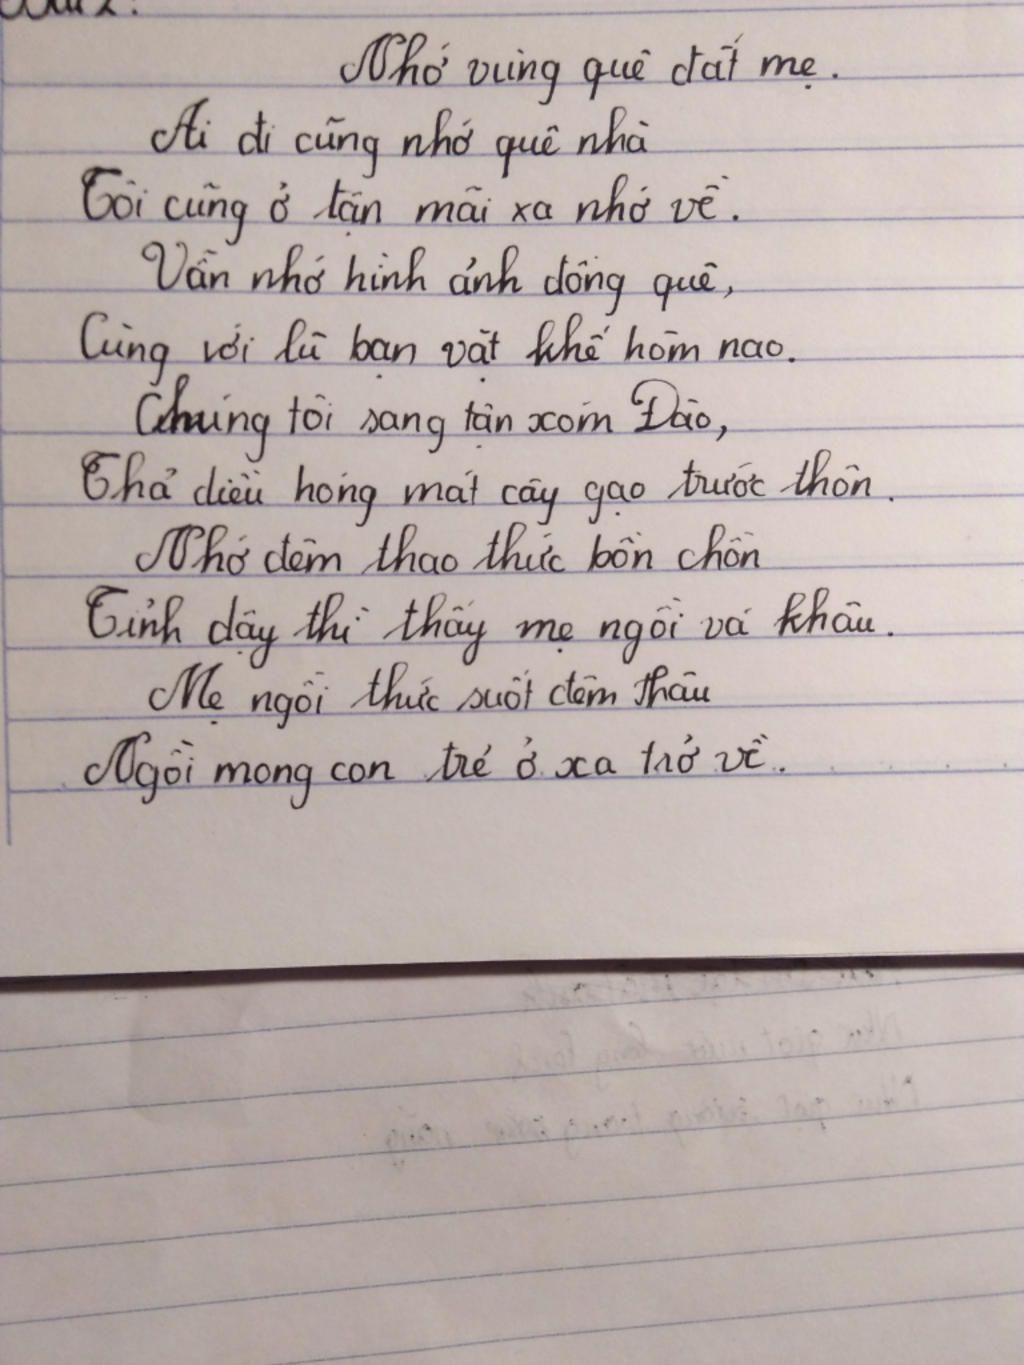 Nhớ vùng quê đất mẹ.
Ai đi cũng nhớ quê nhà
Tôi cũng ở tận mãi xa nhớ về.
Vẫn nhớ hình ảnh đồng quê,
Cùng với lũ bạn vặt khế hôm nao.
Chúng tôi sang tận xóm Đào,
Thả diều hóng mát cây gạo trước thôn.
Nhớ đêm thao thức bồn chồn
Tỉnh dậy thì thấy mẹ ngồi vá khâu.
Mẹ ngồi thức suốt đêm thâu
Ngồi mong con trẻ ở xa trở về.